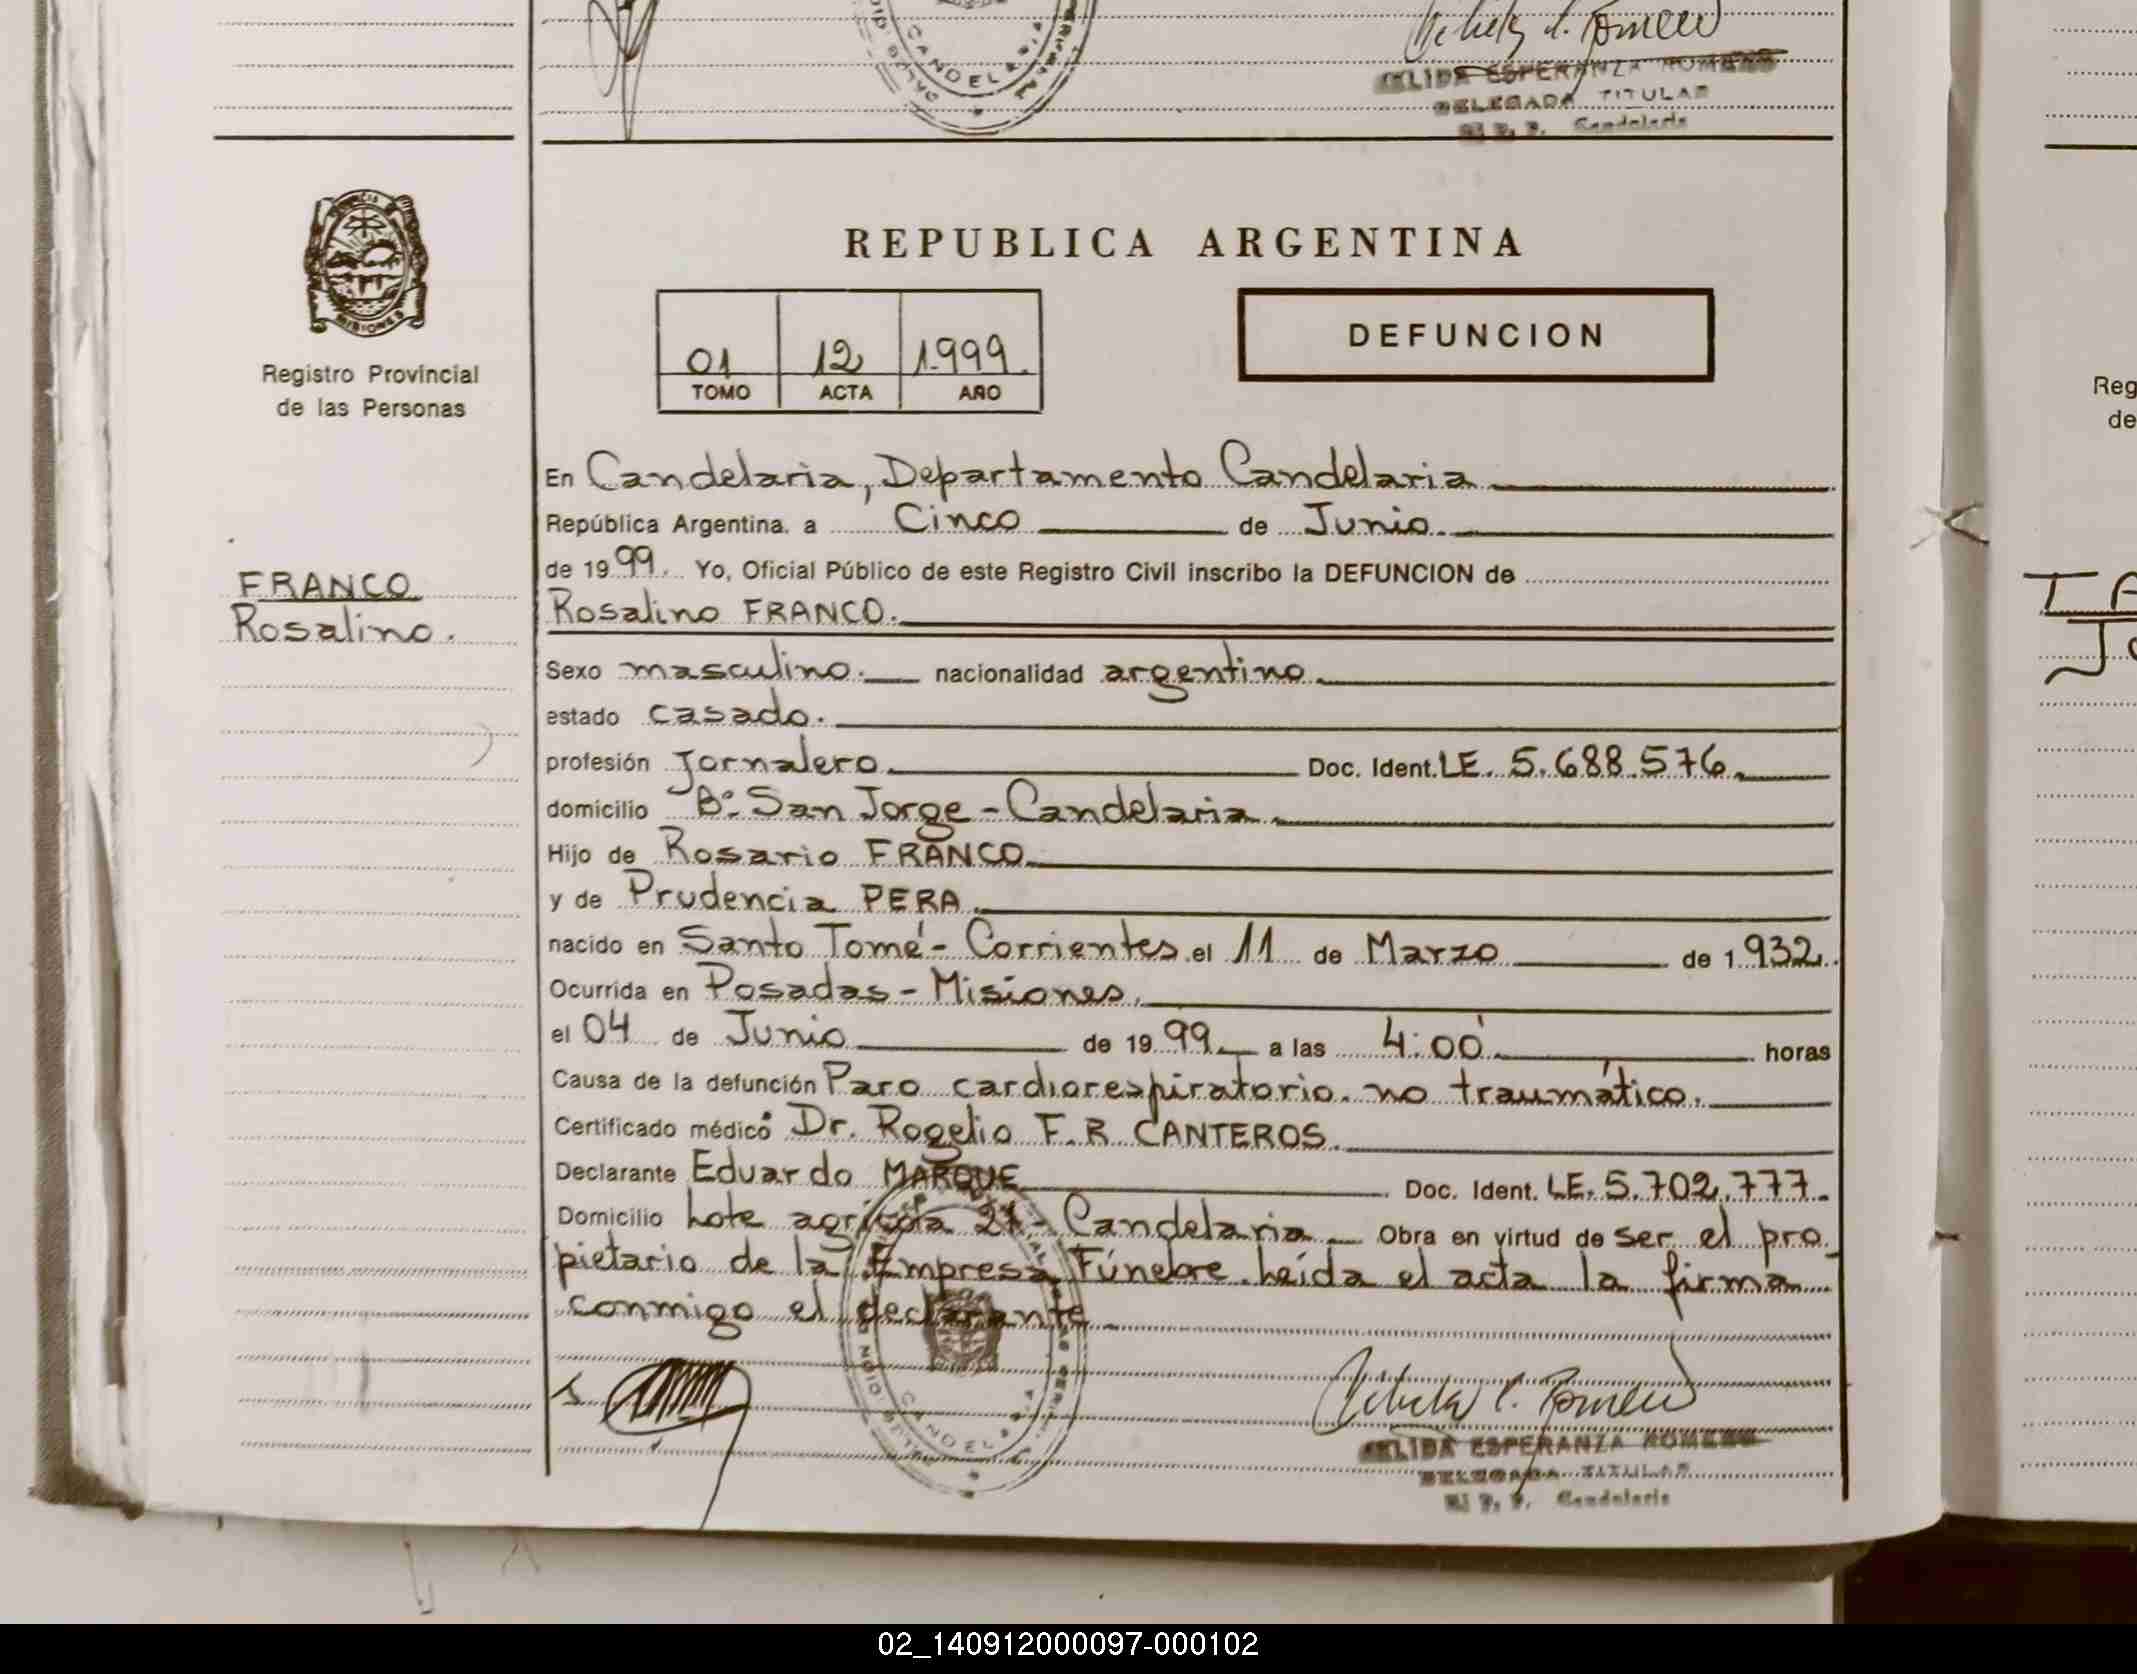 CANDELARIA
NELIDA ESPERANZA ROMERO
DELEGADA TITULAR
Candelaria
MISIONES
Registro Provincial
de las Personas
REPUBLICA ARGENTINA
01 12 1.999.
TOMO ACTA AÑO
DEFUNCION
En Candelaria, Departamento Candelaria
República Argentina. a Cinco de Junio.
de 1999. Yo, Oficial Público de este Registro Civil inscribo la DEFUNCION de
FRANCO
Rosalino.
Rosalino FRANCO.
Sexo masculino. nacionalidad argentino
estado casado.
profesión Jornalero. Doc. Ident. LE. 5.688.576.
domicilio Bº San Jorge - Candelaria.
Hijo de Rosario FRANCO
y de Prudencia PERA.
nacido en Santo Tomé - Corrientes. el 11 de Marzo de 1.932.
Ocurrida en Posadas - Misiones.
el 04 de Junio de 1999. a las 4:00 horas
Causa de la defunción Paro cardiorespiratorio. no traumático.
Certificado médico Dr. Rogelio F.R CANTEROS.
Declarante Eduardo MARQUE Doc. Ident. LE. 5.702.777.
Domicilio Lote agrícola - Candelaria. Obra en virtud de ser el pro
pietario de la Empresa Fúnebre. Leída el acta la firma
conmigo el declarante.
CANDELARIA
NELIDA ESPERANZA ROMERO
DELEGADA TITULAR
Candelaria
Reg
de
02_140912000097-000102